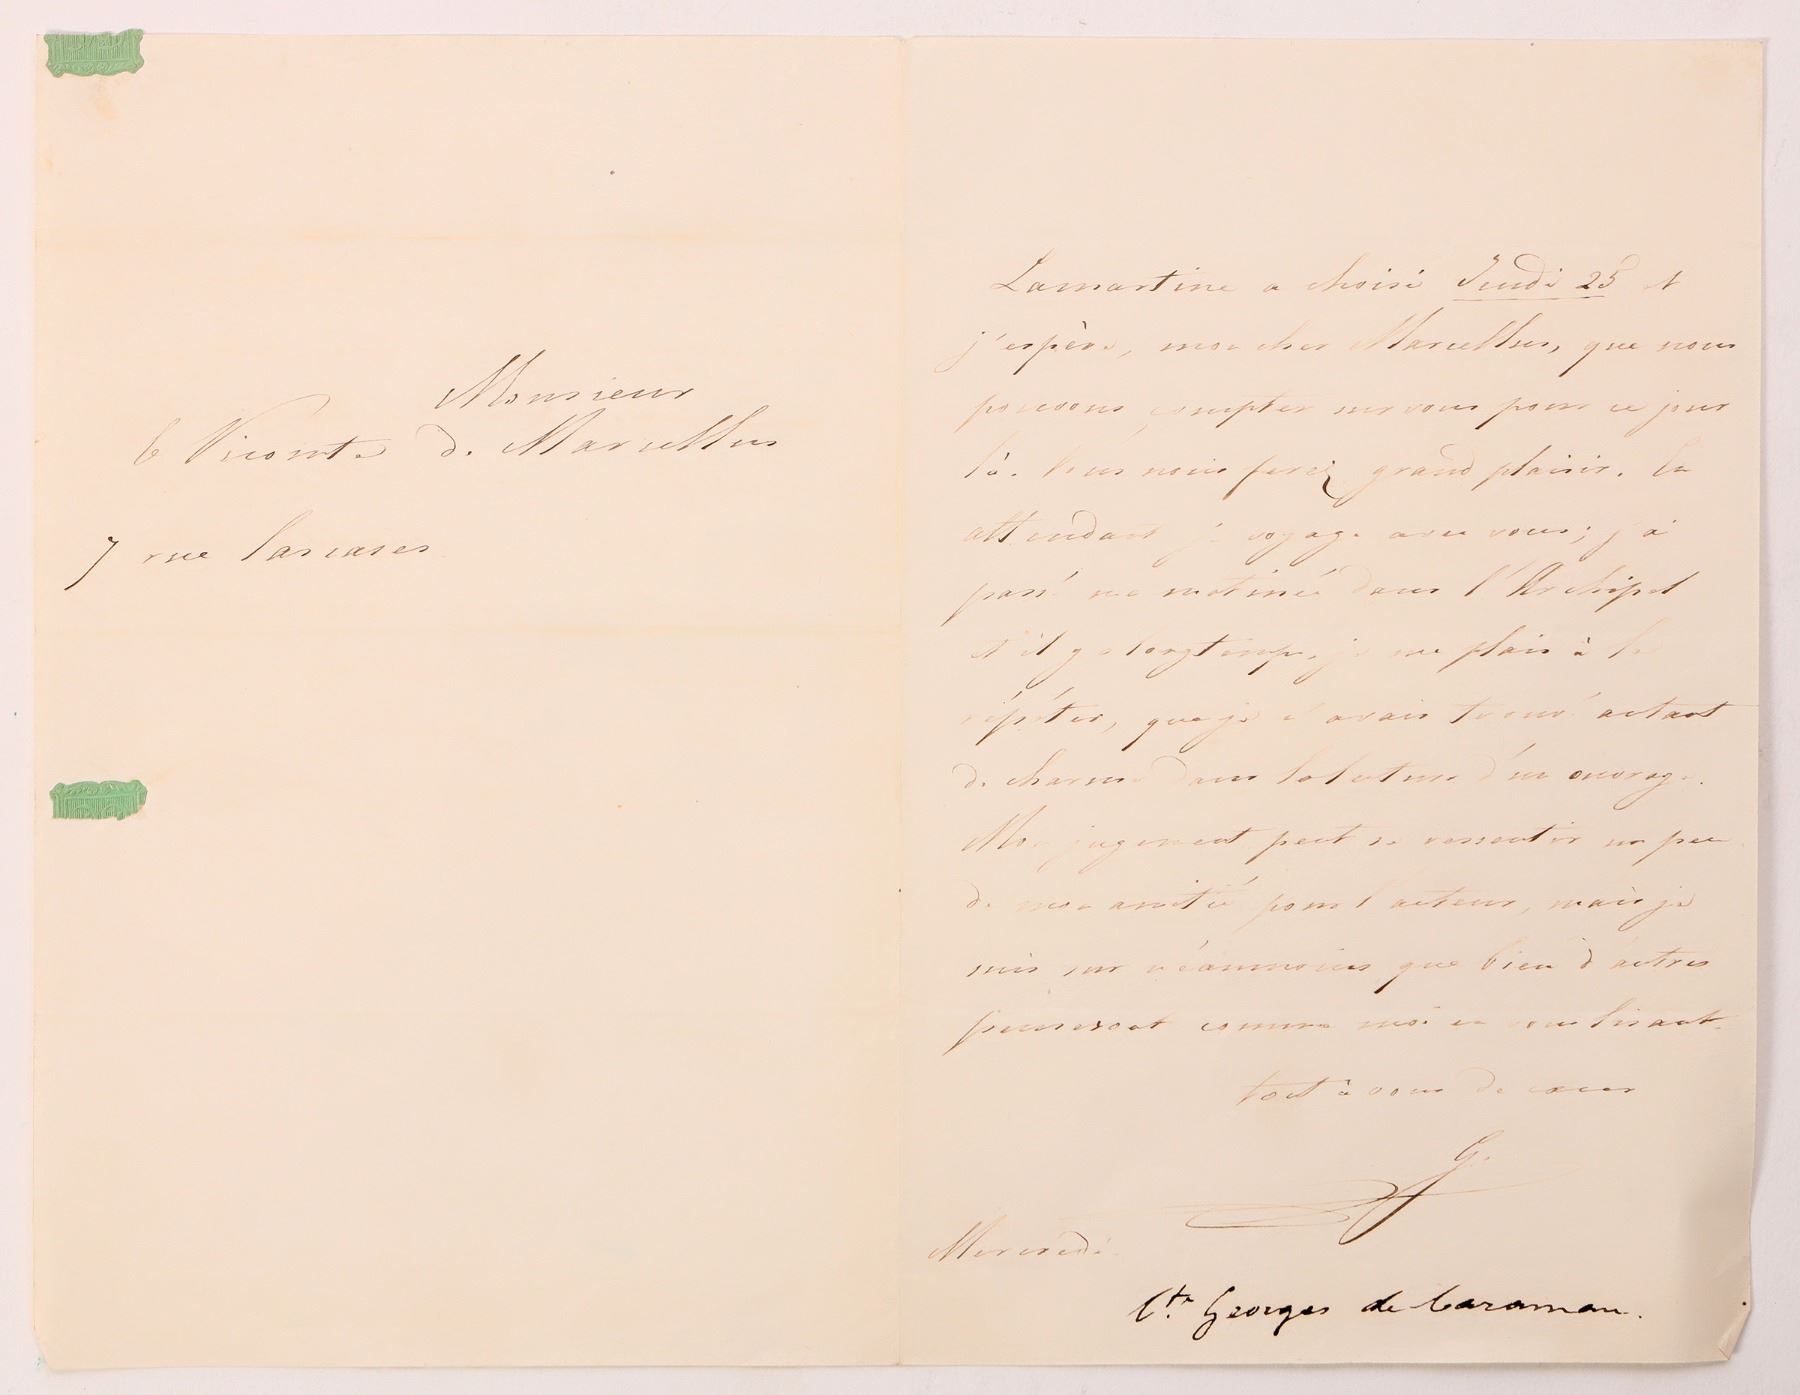 Monsieur
le Vicomte de Marcellus
7 rue Lascases
Lamartine a choisi Jeudi 25 et
j'espère, mon cher Marcellus, que nous
pouvons compter sur vous pour ce jour
là. Vous nous ferez grand plaisir. En
attendant je voyage avec vous; j'ai
passé ma matinée dans l'Archipel
et il y a longtemps, je me plais à le
répéter, que je n'avais trouvé autant
de charme dans la lecture d'un ouvrage.
Mon jugement peut se ressentir un peu
de mon amitié pour l'auteur, mais je
suis sur néanmoins que bien d'autres
penseront comme moi en vous lisant.
tout à vous de coeur
G.
Mercredi
Cte Georges de Caraman.